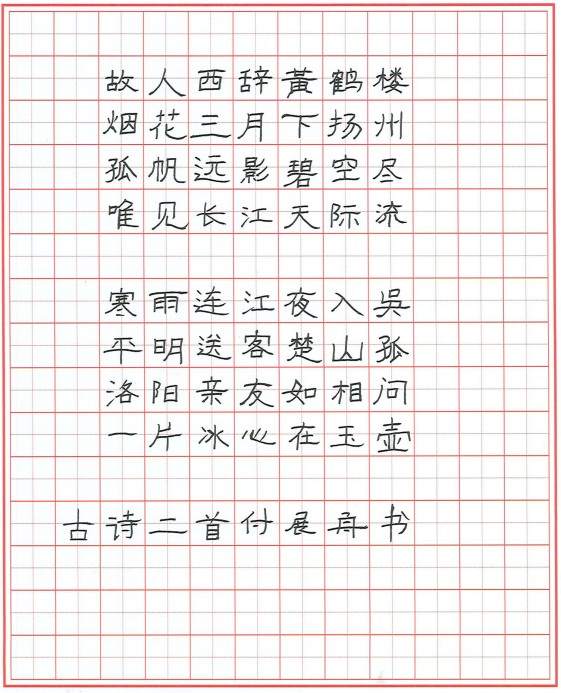 故人西辞黄鹤楼
烟花三月下扬州
孤帆远影碧空尽
唯见长江天际流
寒雨连江夜入吳
平明送客楚山孤
洛阳亲友如相问
一片冰心在玉壶
古诗二首付展舟书